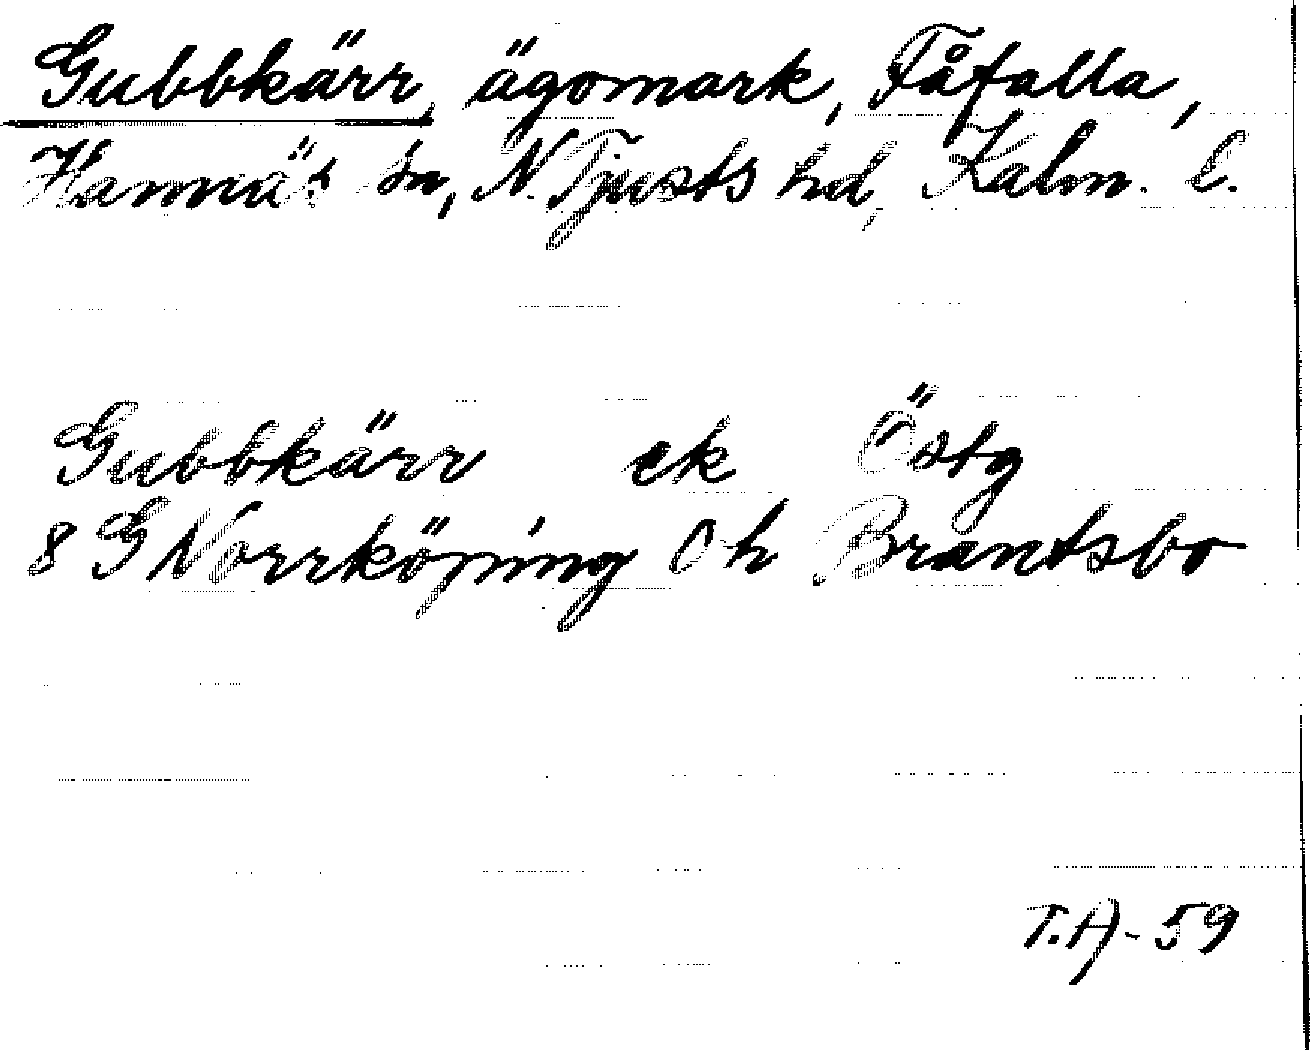 Gubbkärr, ägomark, Fåfalla,
Hannäs sn, N. Tjusts hd, Kalm. l.
Gubbkärr ek Östg
8 G Norrköping Oh Brantsbo
T.A-59